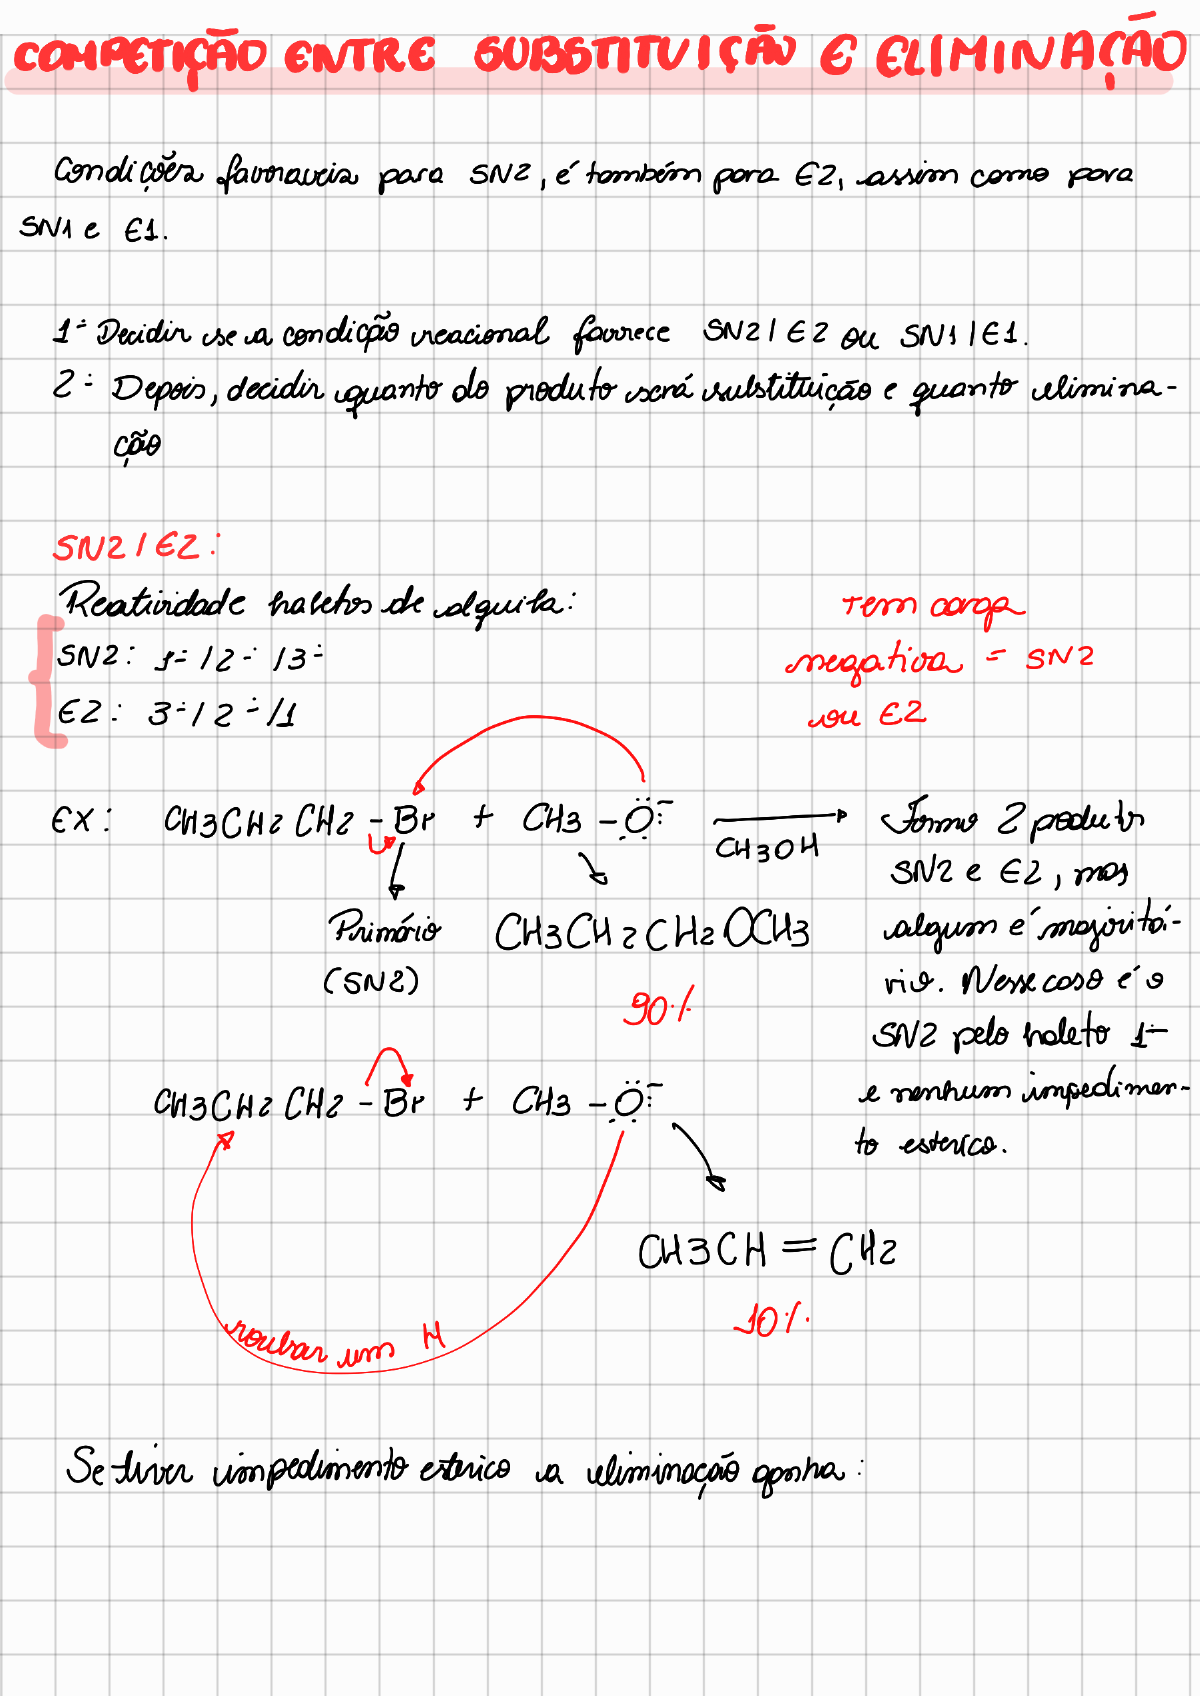 COMPETIÇÃO ENTRE SUBSTITUIÇÃO E ELIMINAÇÃO
Condições favoraveis para SN2, é também para E2, assim como para
SN1 e E1.
1º Decidir se a condição reacional favorece SN2/E2 ou SN1/E1.
2º Depois, decidir quanto do produto será substituição e quanto elimina-
ção
SN2/E2:
Reatividade haletos de alquila:
SN2: 1º/2º/3º
E2: 3º/2º/1
tem carga
negativa = SN2
ou E2
EX: CH3CH2CH2-Br + CH3-Ö:⁻
CH3OH
Primário
(SN2)
CH3CH2CH2OCH3
90%
Forma 2 produtos
SN2 e E2, mas
algum é majoritá-
rio. Nesse caso é o
SN2 pelo haleto 1º
e nenhum impedimen-
to esterico.
CH3CH2CH2-Br + CH3-Ö:⁻
CH3CH=CH2
10%
roubar um H
Se tiver impedimento esterico a eliminação ganha: